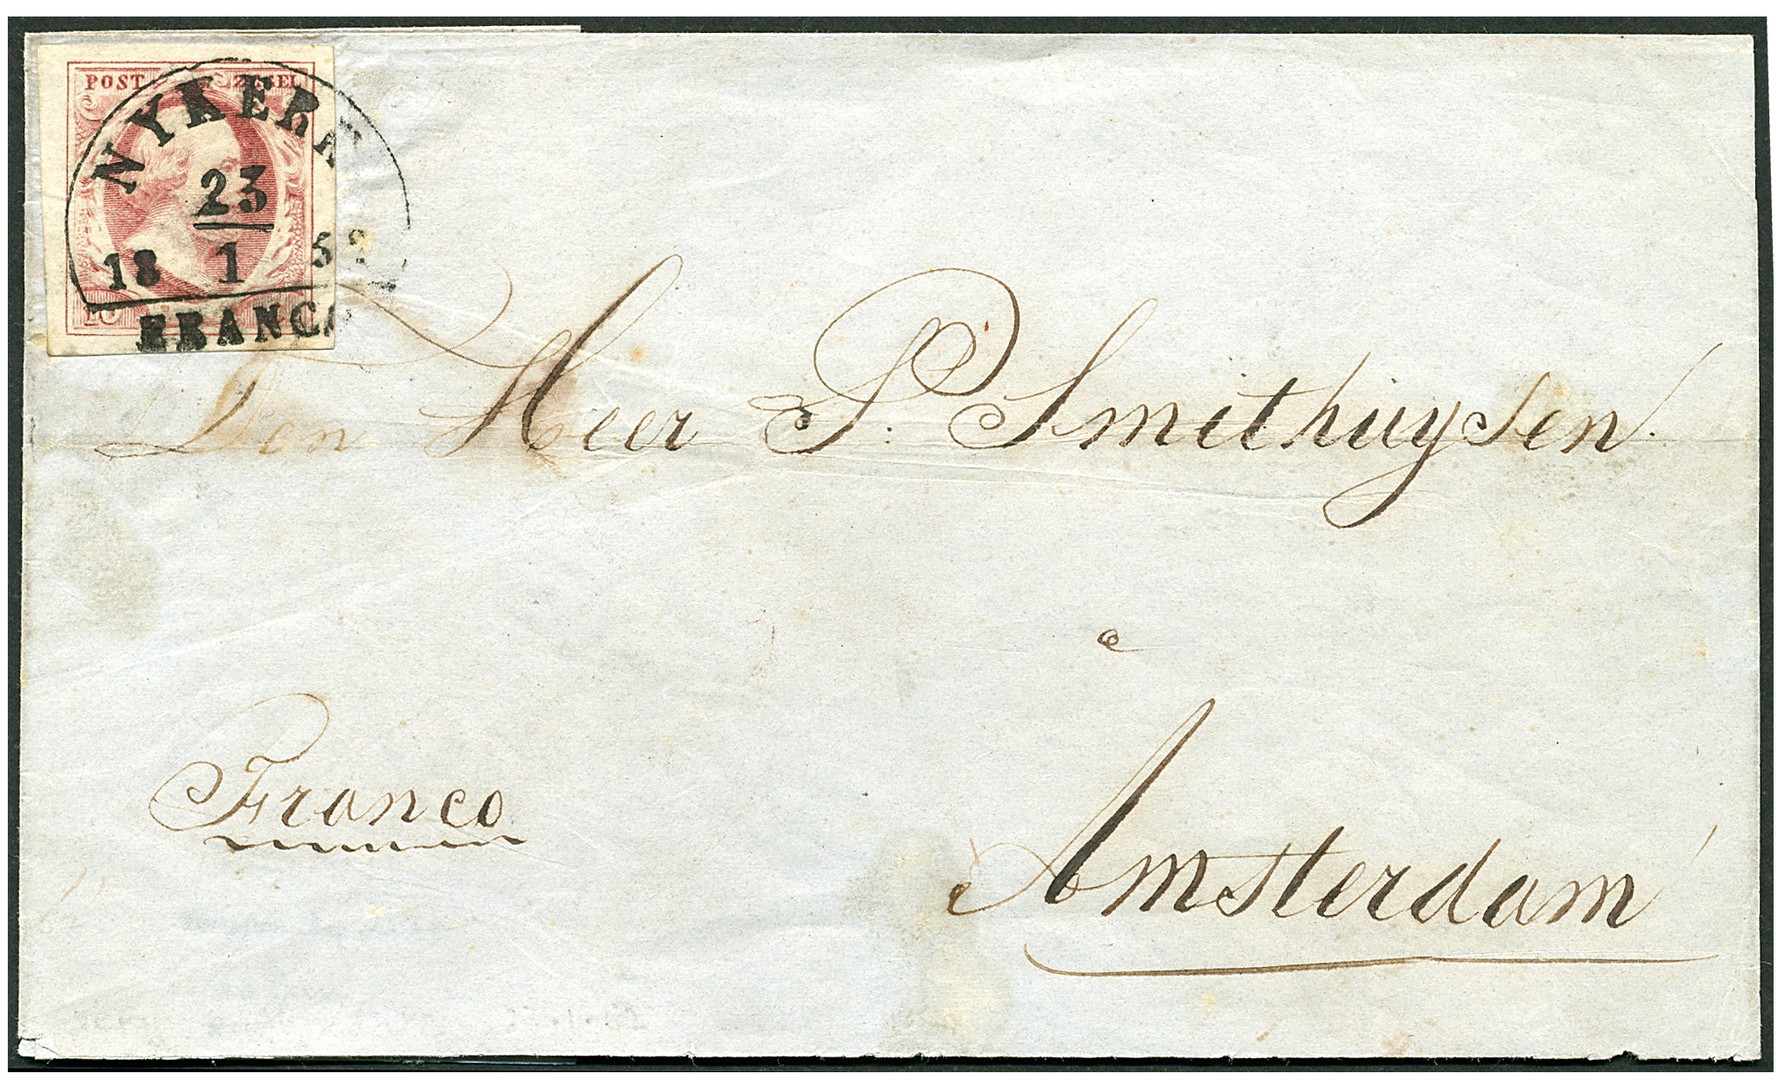 POST ZEGEL
NYKERK
23
18 1 5
FRANCO
Den Heer P. Smithuysen.
a
Franco
Amsterdam